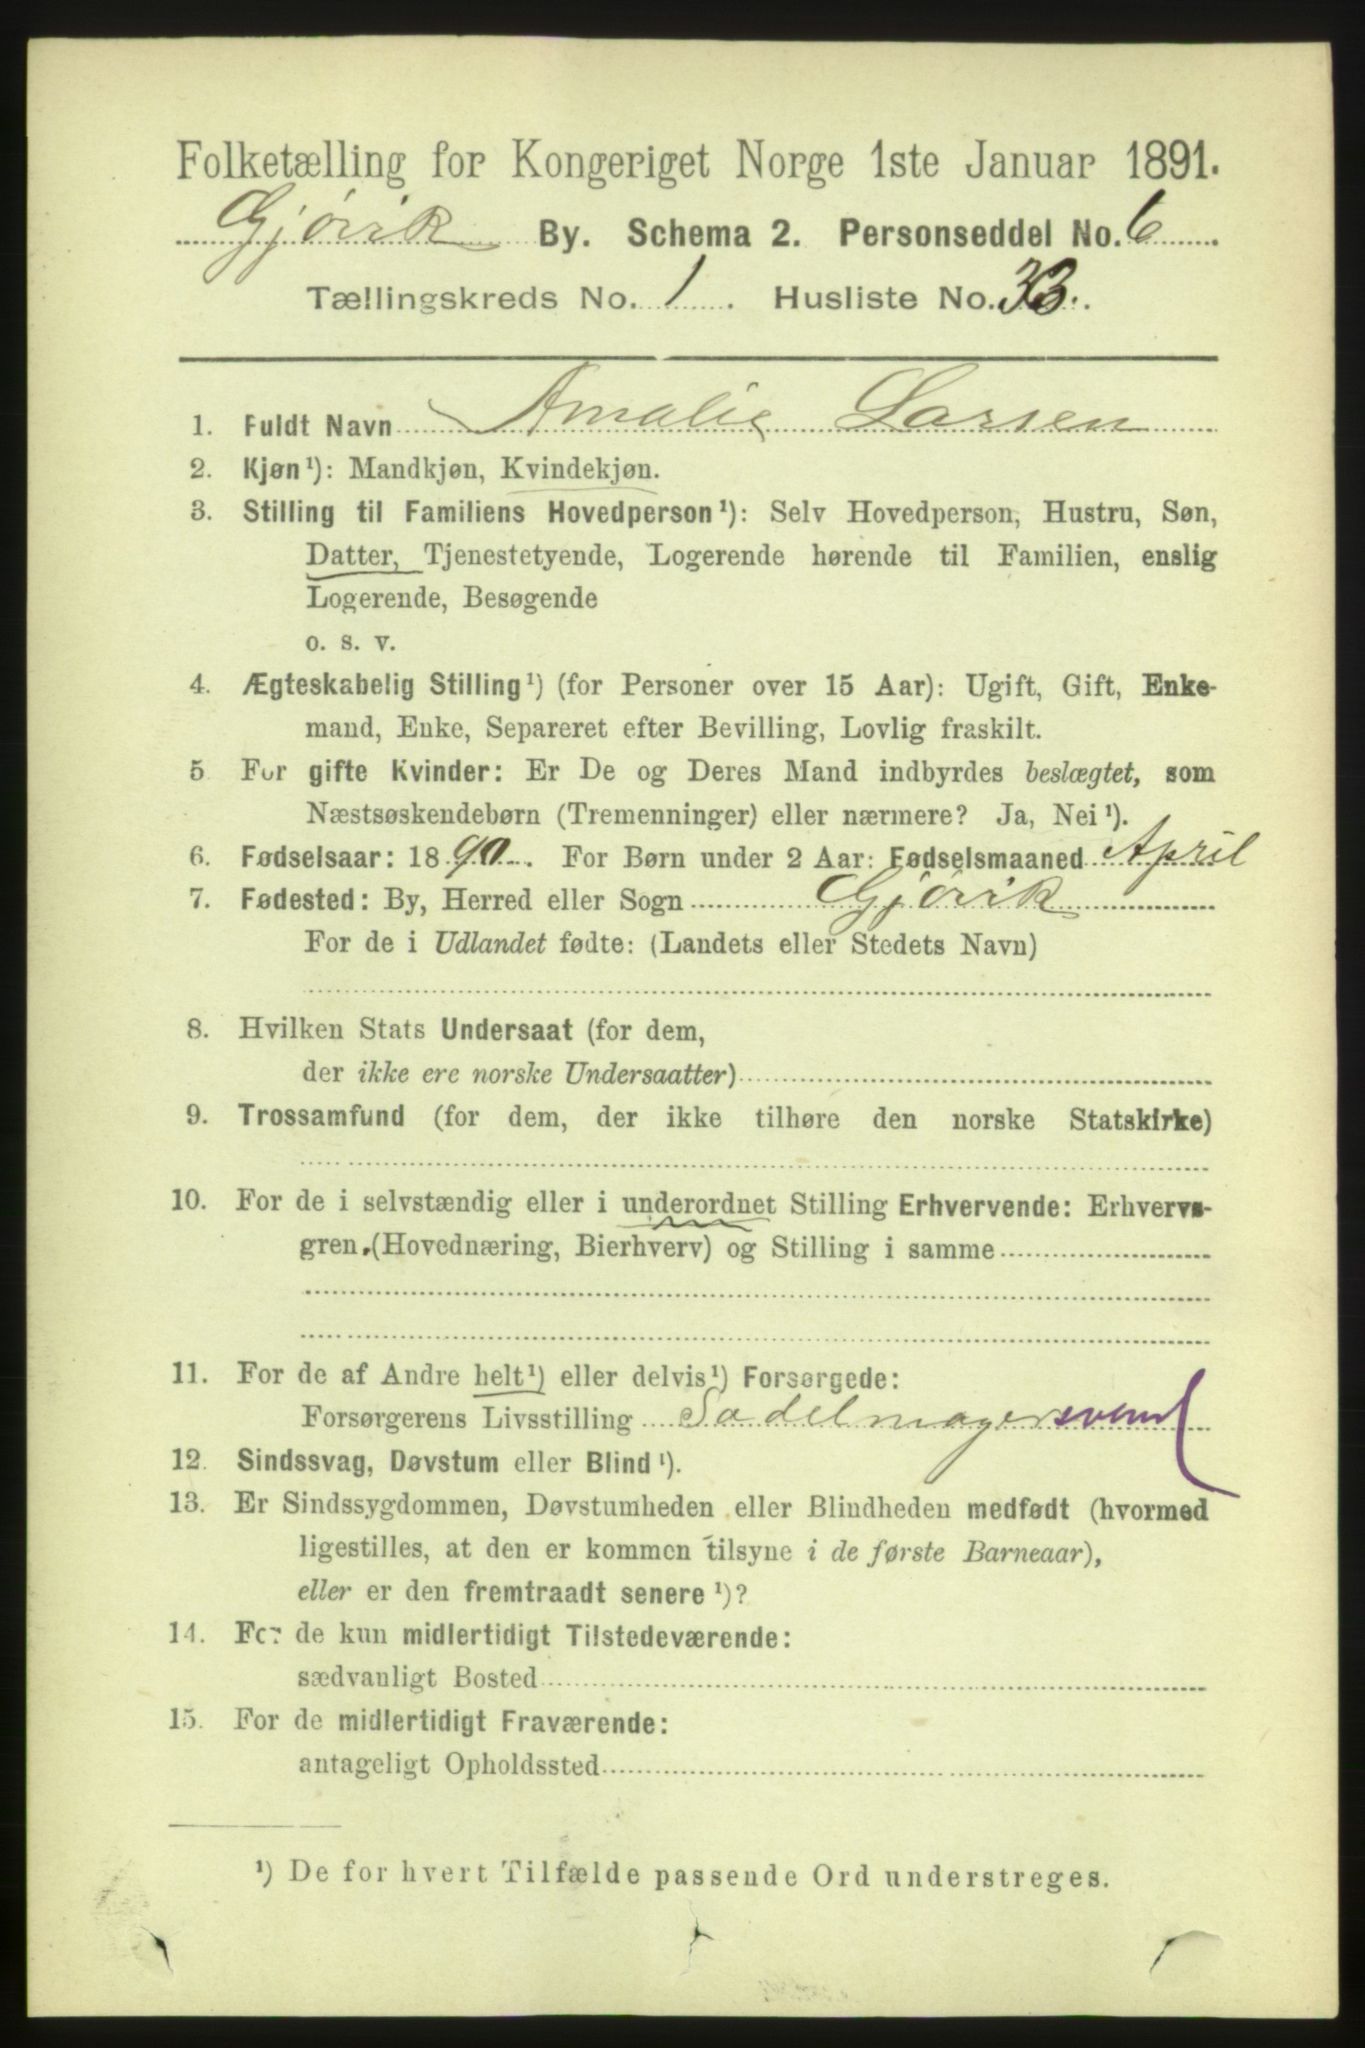 Folketælling for Kongeriget Norge 1ste Januar 1891.
Gjövik By. Schema 2. Personseddel No. 6
Tællingskreds No. 1. Husliste No. 33.
1. Fuldt Navn Amalie Larsen
2. Kjøn¹): Mandkjøn, Kvindekjøn.
3. Stilling til Familiens Hovedperson¹): Selv Hovedperson, Hustru, Søn,
Datter, Tjenestetyende, Logerende hørende til Familien, enslig
Logerende, Besøgende
o. s. v.
4. Ægteskabelig Stilling¹) (for Personer over 15 Aar): Ugift, Gift, Enke-
mand, Enke, Separeret efter Bevilling, Lovlig fraskilt.
5 For gifte Kvinder: Er De og Deres Mand indbyrdes beslægtet, som
Næstsøskendebørn (Tremenninger) eller nærmere? Ja, Nei¹).
6. Fødselsaar: 1890. For Børn under 2 Aar: Fødselsmaaned April
7. Fødested: By, Herred eller Sogn Gjövik
For de i Udlandet fødte: (Landets eller Stedets Navn)
8. Hvilken Stats Undersaat (for dem,
der ikke ere norske Undersaatter)
9. Trossamfund (for dem, der ikke tilhøre den norske Statskirke)
10. For de i selvstændig eller i underordnet Stilling Erhvervende: Erhvervs-
gren (Hovednæring, Bierhverv) og Stilling i samme
11. For de af Andre helt¹) eller delvis¹) Forsørgede:
Forsørgerens Livsstilling Sadelmagersvend
12. Sindssvag, Døvstum eller Blind¹).
13. Er Sindssygdommen, Døvstumheden eller Blindheden medfødt (hvormed
ligestilles, at den er kommen tilsyne i de første Barneaar),
eller er den fremtraadt senere¹)?
14. For de kun midlertidigt Tilstedeværende:
sædvanligt Bosted
15. For de midlertidigt Fraværende:
antageligt Opholdssted
¹) De for hvert Tilfælde passende Ord understreges.